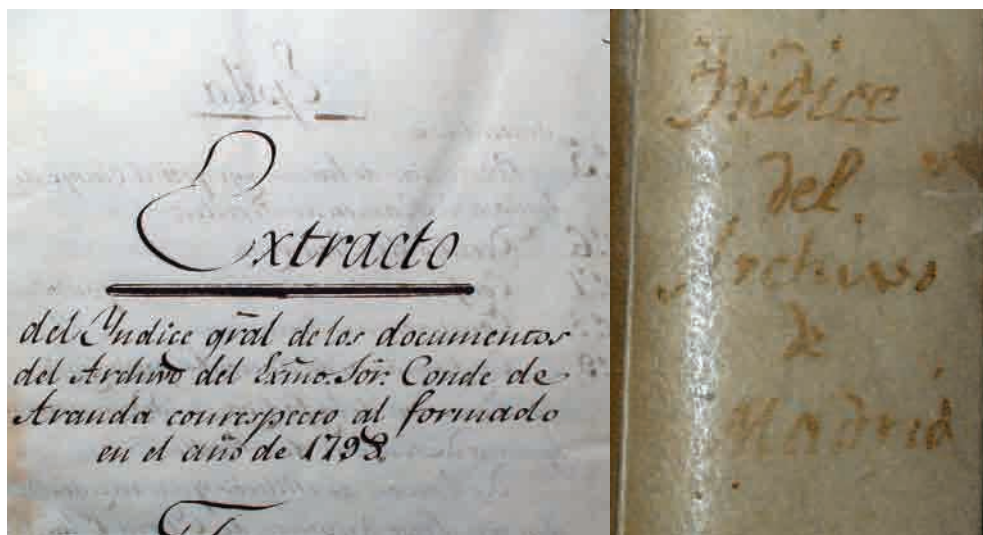 Extracto
del Yndice gral de los documentos
del Archivo del Exmo. Sor. Conde de
Aranda conrespecto al formado
en el año de 1798.
Indice
del
Archivo
de
Madrid